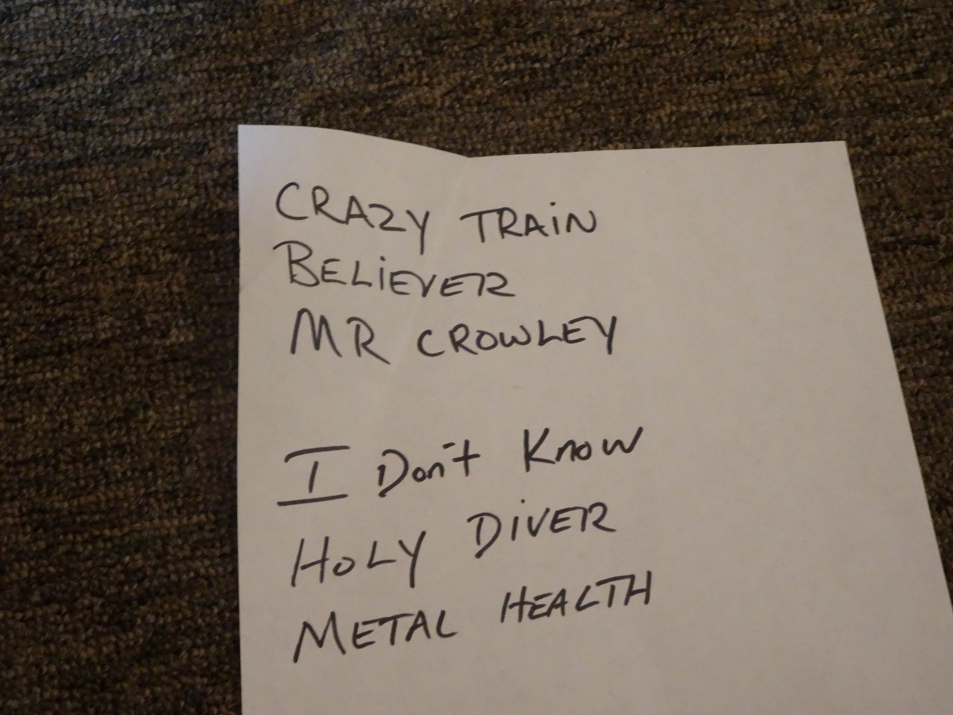 CRAZY TRAIN
BELiEVER
MR CROWLEY
I Don't Know
HOLY DiVER
METAL HEALTH